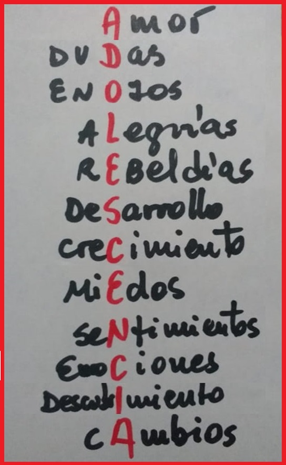 AmoR
DUDas
ENOJOS
ALegrías
REBeldías
DeSarrollo
CreCimiento
MiEdos
SeNtimientos
EmoCiones
DescubrImiento
CAmbios